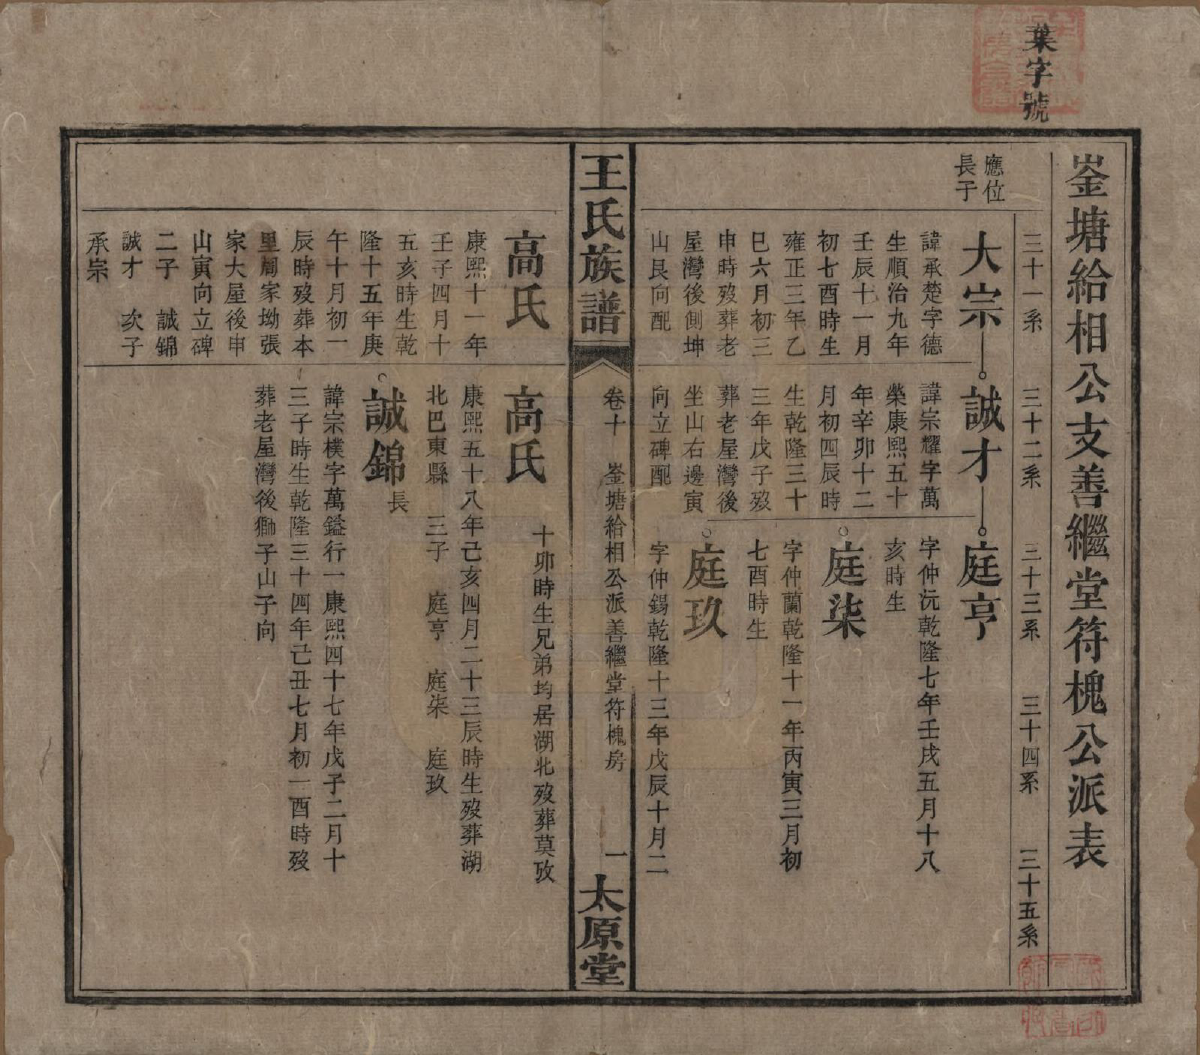 葉字號
崟塘給相公支善繼堂符槐公派表
三十一系
三十二系
三十三系
三十四系
三十五系
應位
長于
大宗
諱承楚字德
生順治九年
壬辰十一月
初七酉時生
雍正三年乙
巳六月初三
申時歿葬老
屋灣後側坤
山艮向配
誠才
諱宗耀字萬
榮康熙五十
年辛卯十二
月初四辰時
生乾隆三十
三年戊子歿
葬老屋灣後
坐山右邊寅
向立碑配
庭亨
字仲沅乾隆七年壬戌五月十八
亥時生
庭柒
字仲蘭乾隆十一年丙寅三月初
七酉時生
庭玖
字仲錫乾隆十三年戊辰十月二
王氏族譜
卷十
崟塘給相公派善繼堂符槐房
一
太原堂
高氏
康熙十一年
壬子四月十
五亥時生乾
隆十五年庚
午十月初一
辰時歿葬本
里周家坳張
家大屋後申
山寅向立碑
二子 誠錦
誠才 次子
承宗
十卯時生兄弟均居湖北歿葬莫攷
高氏
康熙五十八年己亥四月二十三辰時生歿葬湖
北巴東縣 三子 庭亨 庭柒 庭玖
誠錦
長
諱宗樸字萬鎰行一康熙四十七年戊子二月十
三子時生乾隆三十四年己丑七月初一酉時歿
葬老屋灣後獅子山子向